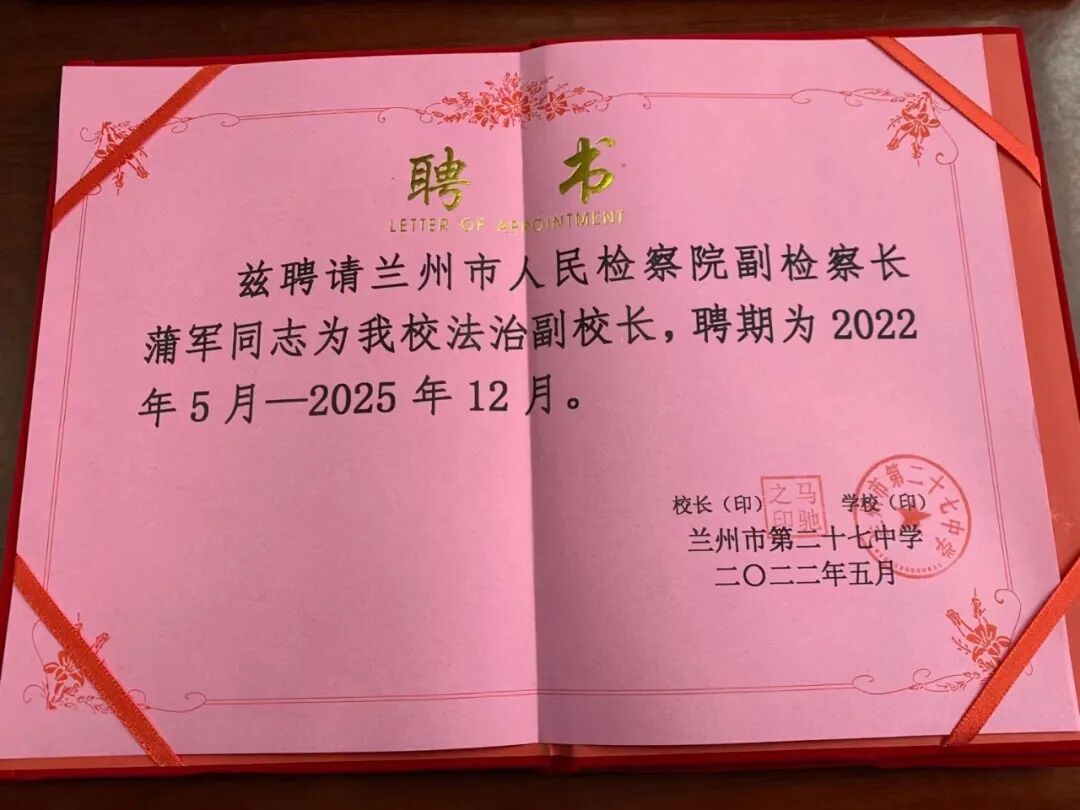 聘 书
LETTER OF APPOINTMENT
兹聘请兰州市人民检察院副检察长
蒲军同志为我校法治副校长，聘期为 2022
年 5 月—2025 年 12 月。
校长（印） 学校（印）
马驰之印
兰州市第二十七中学
兰州市第二十七中学
二〇二二年五月